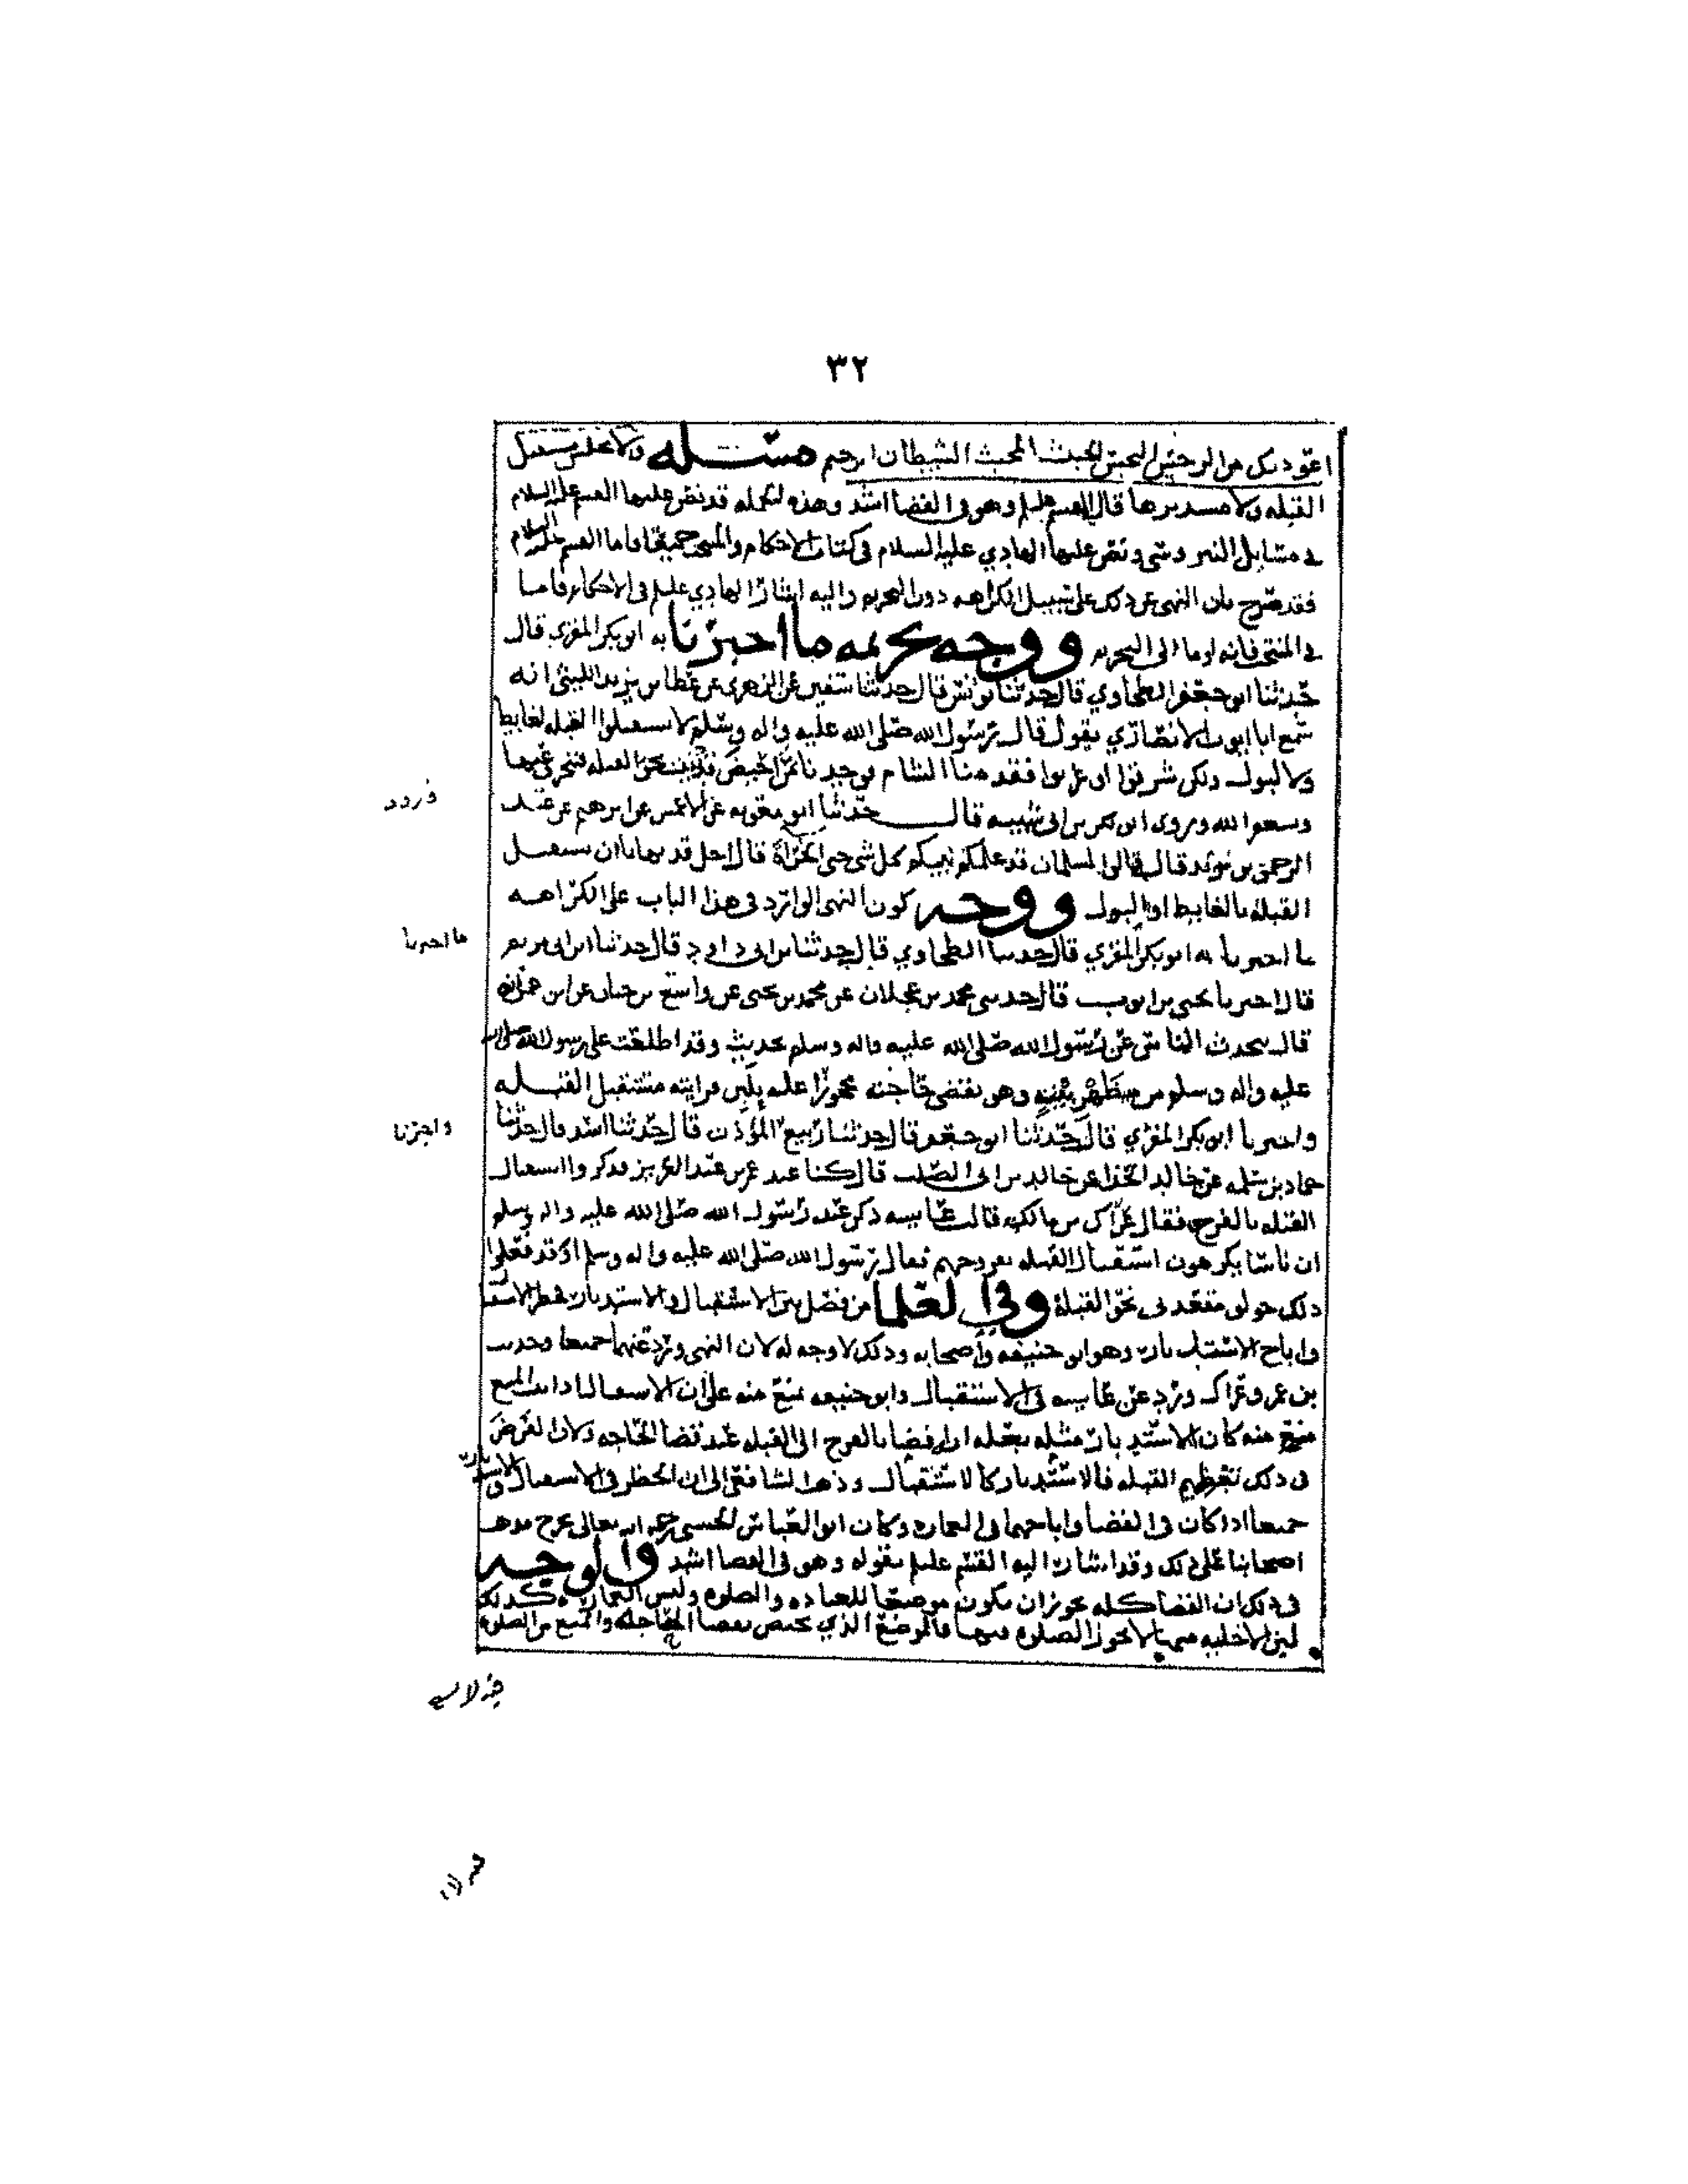 ٣٢
اعوذ بك من الرجس النجس الخبيث المخبث الشيطان الرجيم مسئله ولا يجلس مستقبل
القبله ولا مستدبرها قال القسم عليلم وهو في الفضا اشد وهذه الجمله قد نص عليها القسم عليه السلام
في مسايل النيروسي ونص عليها الهادي عليه السلام في كتاب الاحكام والمنتخب جميعا فاما القسم عليه السلام
فقد صرح بان النهي عن ذلك على سبيل الكراهه دون التحريم واليه اشار الهادي عليلم في الاحكام فاما
في المنتخب فانه اوما الى التحريم ووجه تحريمه ما اخبرنا به ابو بكر المقري قال
حدثنا ابو جعفر الطحاوي قال حدثنا يونس قال حدثنا سفين عن الزهري عن عطا بن يزيد الليثي انه
سمع ابا ايوب الانصاري يقول قال رسول الله صلى الله عليه واله وسلم لا تستقبلوا القبله لغايط
ولا لبول ولكن شرقوا او غربوا فقدمنا الشام فوجدنا مراحيض قد بنيت نحو القبله فننحرف عنها
ونستغفر الله وروى ابو بكر بن ابي شيبه قال حدثنا ابو معويه عن الاعمش عن ابرهيم عن عبد
الرحمن بن يزيد قال قالوا لسلمان قد علمكم نبيكم كل شي حتى الخراة قال اجل قد نهانا ان نستقبل
القبله بالغايط او البول ووجه كون النهي الوارد في هذا الباب على الكراهه
ما اخبرنا به ابو بكر المقري قال حدثنا الطحاوي قال حدثنا بن ابي داود قال حدثنا ابن ابي مريم
قال اخبرنا يحيى بن ايوب قال حدثني محمد بن عجلان عن محمد بن يحيى عن واسع بن حبان عن ابن عمر انه
قال يتحدث الناس عن رسول الله صلى الله عليه واله وسلم بحديث وقد اطلعت على رسول الله صلى الله
عليه واله وسلم من ظهر بيت وهو يقضي حاجته محجوزا عليه بلبن فرايته مستقبل القبله
واخبرنا ابو بكر المقري قال حدثنا ابو جعفر قال حدثنا ربيع المؤذن قال حدثنا اسد قال حدثنا
حماد بن سلمه عن خالد الحذا عن خالد بن ابي الصلت قال كنا عند عمر بن عبد العزيز فذكروا استقبال
القبله بالفرج فقال عراك بن مالك قالت عايشه ذكر عند رسول الله صلى الله عليه واله وسلم
ان ناسا يكرهون استقبال القبله بفروجهم فقال رسول الله صلى الله عليه واله وسلم او قد فعلوا
ذلك حولوا مقعدتي نحو القبلة وفي العلما من فصل بين الاستقبال والاستدبار فحظر الاستقبال
واباح الاستدبار وهو ابو حنيفه واصحابه وذلك لا وجه له لان النهي ورد عنهما جميعا وحديث
بن عمر وعراك ورد عن عايشه في الاستقبال وابو حنيفه يمنع منه على ان الاستقبال اذا ثبت المنع
منع منه كان الاستدبار مثله بعلة انه افضا بالفرج الى القبله عند قضا الحاجه ولان الغرض
في ذلك تعظيم القبله فالاستدبار كالاستقبال وذهب الشافعي الى ان الحظر في الاستقبال والاستدبار
جميعا اذا كان في الفضا واباحهما في العماره وكان ابو العباس الحسني رحمه الله تعالى يخرج مذهب
اصحابنا على ذلك وقد اشار اليه القسم عليلم بقوله وهو في الفضا اشد والوجه
في ذلك ان الفضا كله يجوز ان يكون موضعا للعباده والصلوه وليس العماره كذلك
لان الاخليه منها لا تجوز الصلوه فيها فالموضع الذي يختص بقضا الحاجه والمنع من الصلوه
ما اخبرنا
واخبرنا
فيه لا